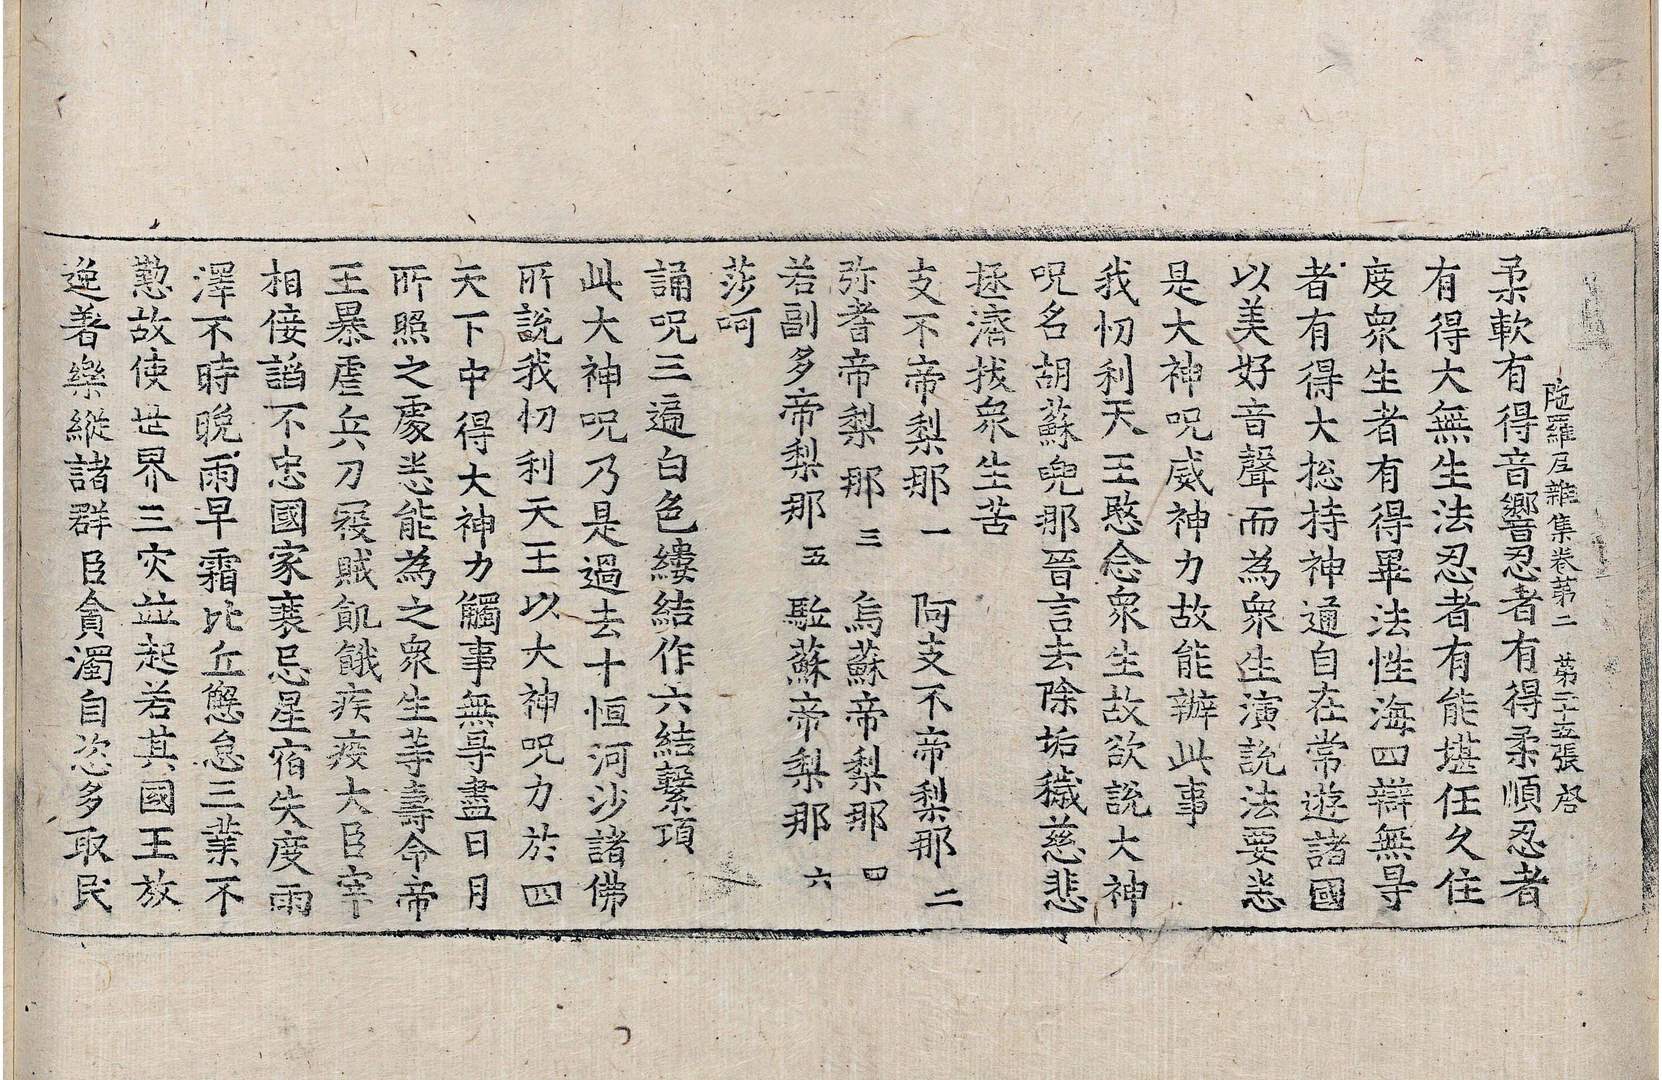 陁羅尼雜集卷苐二　苐二十五張　啓
柔軟有得音響忍者有得柔順忍者
有得大無生法忍者有能堪任久住
度衆生者有得畢法性海四辯無㝵
者有得大揔持神通自在常遊諸國
以美好音聲而為衆生演說法要悉
是大神呪威神力故能辦此事
我忉利天王愍念衆生故欲說大神
呪名胡蘇兜那晉言去除垢穢慈悲
拯濟拔衆生苦
支不帝梨那 一　阿支不帝梨那 二
弥耆帝梨那 三　烏蘇帝梨那 四
若副多帝梨那 五　䭾蘇帝梨那 六
莎呵
誦呪三遍白色縷結作六結繫項
此大神呪乃是過去十恒河沙諸佛
所說我忉利天王以大神呪力於四
天下中得大神力觸事無㝵盡日月
所照之處悉能為之衆生䓁壽命帝
王暴虐兵刀役賊飢餓疾疫大臣宰
相侫諂不忠國家衰忌星宿失度雨
澤不時晚雨早霜比丘懈怠三業不
懃故使世界三灾並起若其國王放
逸著樂縱諸群臣貪濁自恣多取民